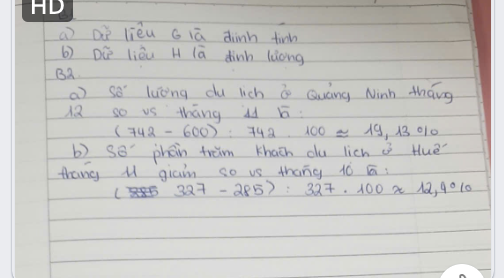 HD
a) Dữ liệu G là định tính
b) Dữ liệu H là định lượng
B2.
a) Số lượng du lịch ở Quảng Ninh tháng
12 so vs tháng 11 là:
(742 - 600) : 742 . 100 ≈ 19,13%
b) Số phần trăm khách du lịch ở Huế
tháng 11 giảm so vs tháng 10 là:
( 327 - 285) : 327 . 100 ≈ 12,4%